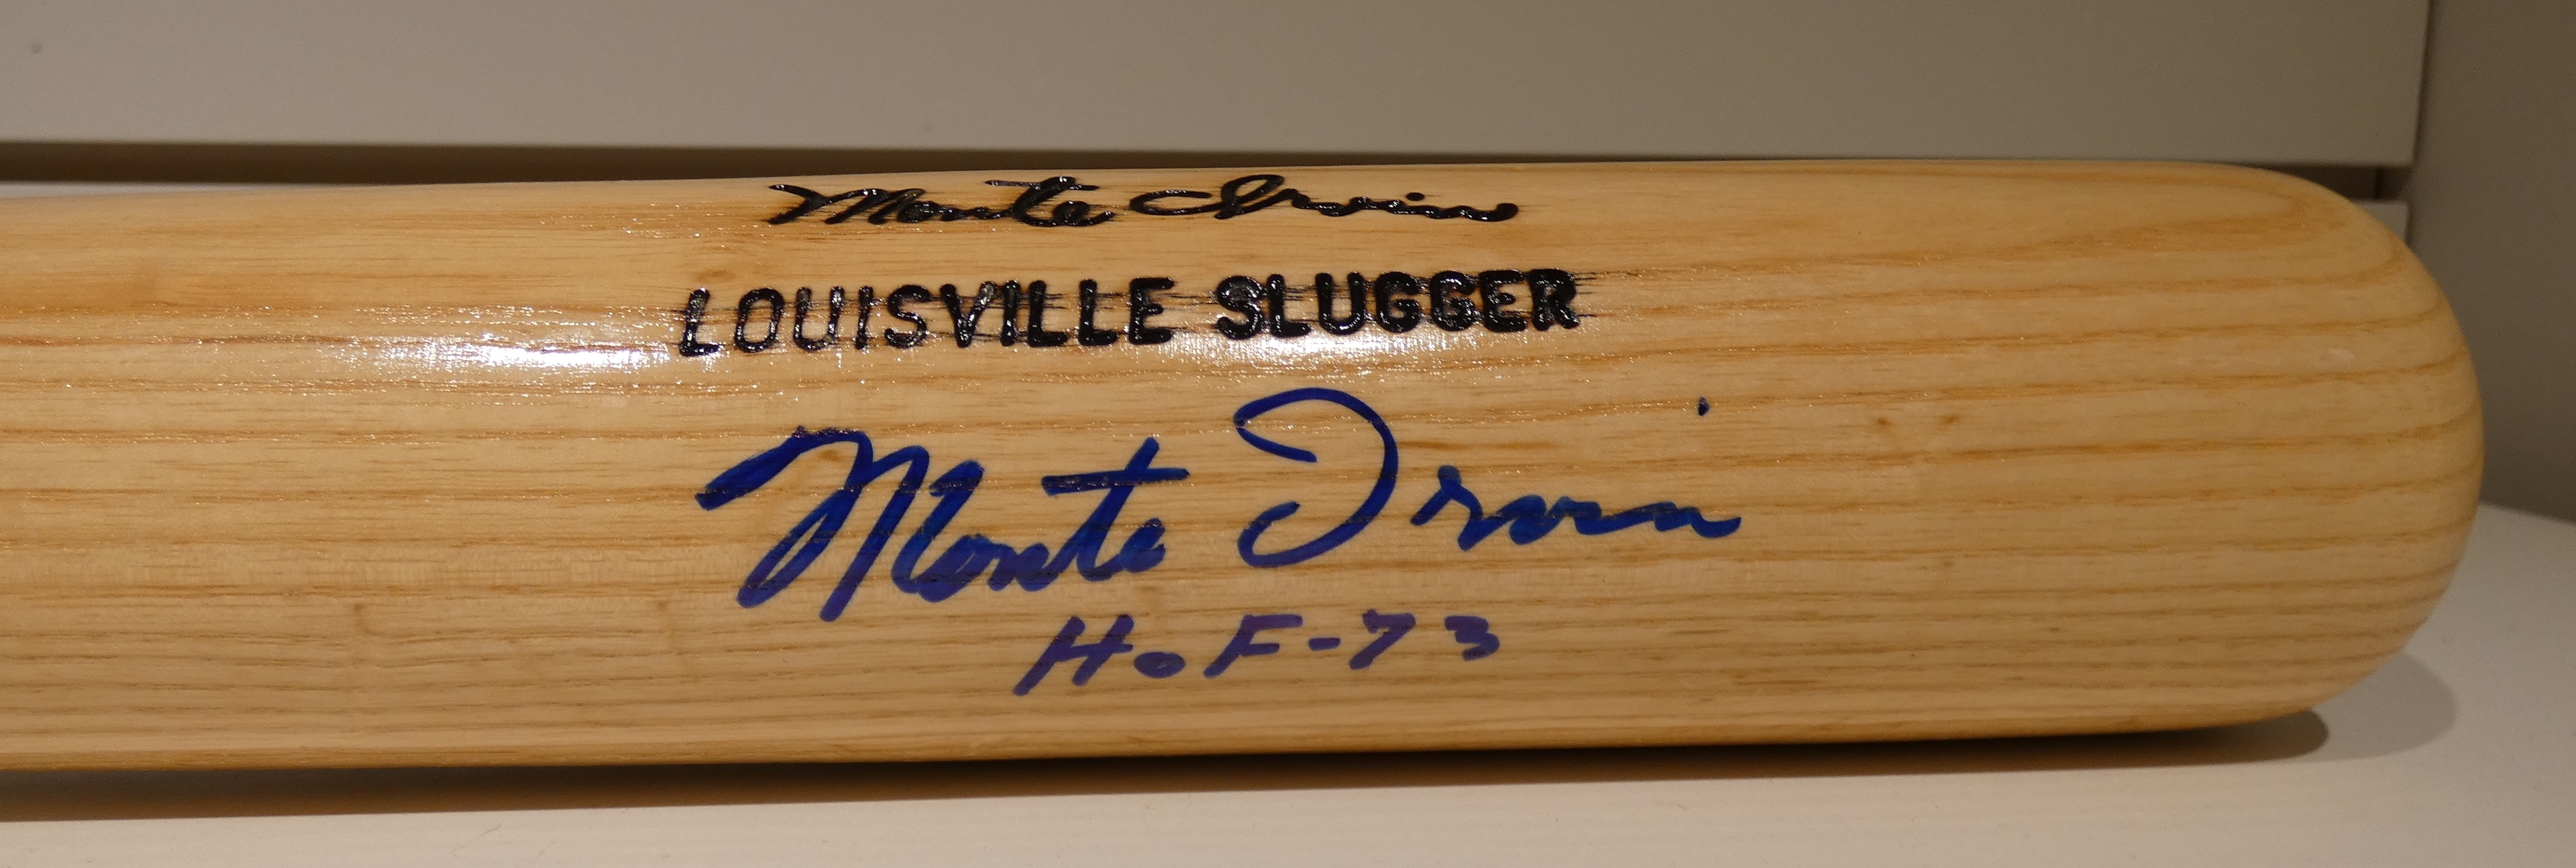 Monte Irvin
LOUISVILLE SLUGGER
Monte Irvin
HoF-73